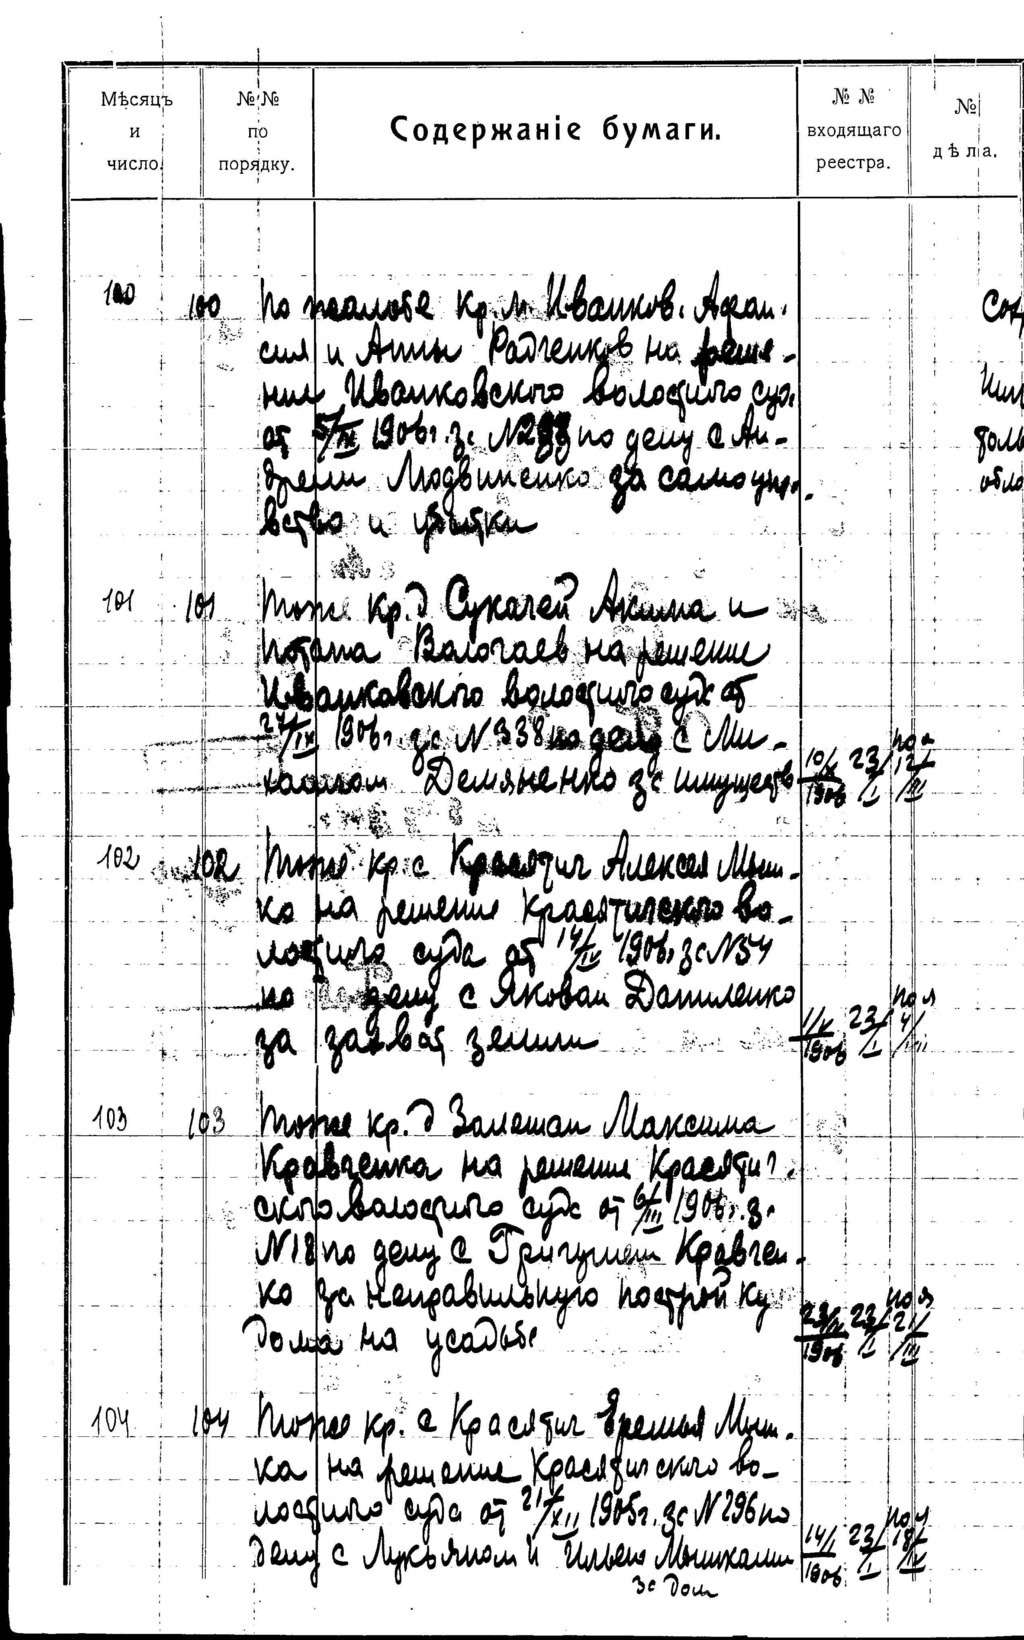 Мѣсяцъ и число.
№№ по порядку.
Содержаніе бумаги.
№№ входящаго реестра.
№ дѣла.
100 100 По жалобе кр. м. Иванков. Афан.
сия и Анны Радченков на реше-
ния Иванковского волостного суда
от 5/IX 1906 г. за № по делу с Ан-
дреем Людвиненко за самоупр.
вство и убытки
101 101 тоже кр. д Сукачей Акима и
Потапа Валочаев на решение
Иванковского волостного суда от
27/IX 1906 г. за № 338 по делу с Ми-
хаилом Демяненко за имуществ
10/X 1906 23/I пол 12/III
102 102 тоже кр. с Красятич Алексея Мыш-
ко на решение Красятичского во-
лостного суда от 14/IV 1906 г. за № 54
по делу с Яковом Даниленко
за захват земли
1/V 1906 23/I пол 4/III
103 103 тоже кр. д Залешан Максима
Кравченка на решение Красятич.
ского волостного суда от 6/III 1906 г. за
№ 18 по делу с Григурием Кравчен-
ко за неправильную постройку
дома на усадьбе
23/IV 1906 23/I пол 21/III
104 104 тоже кр. с Красятич Еремея Мыш-
ка на решение Красятичского во-
лостного суда от 21/XII 1905 г. за № 296 по
делу с Лукьяном и Ильею Мышками
за дом
14/I 1906 23/I пол 18/IV